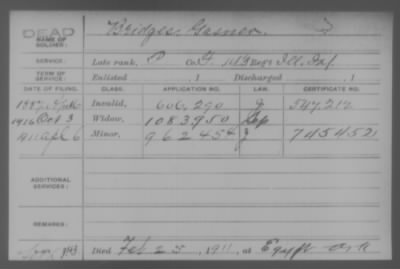 DEAD
NAME OF SOLDIER: Bridges, Gasner
SERVICE: Late rank, P Co. G, 113 Reg't Ill. Inf
TERM OF SERVICE: Enlisted , 1 Discharged , 1
DATE OF FILING. CLASS. APPLICATION NO. LAW. CERTIFICATE NO.
1887 Invalid, 606,290 J 547,212
1916 Oct 3 Widow, 1083,950
1911 Apl 6 Minor, 962454 J 745452
ADDITIONAL SERVICES:
REMARKS:
Died Feb 25, 1911, at Egypt Ark